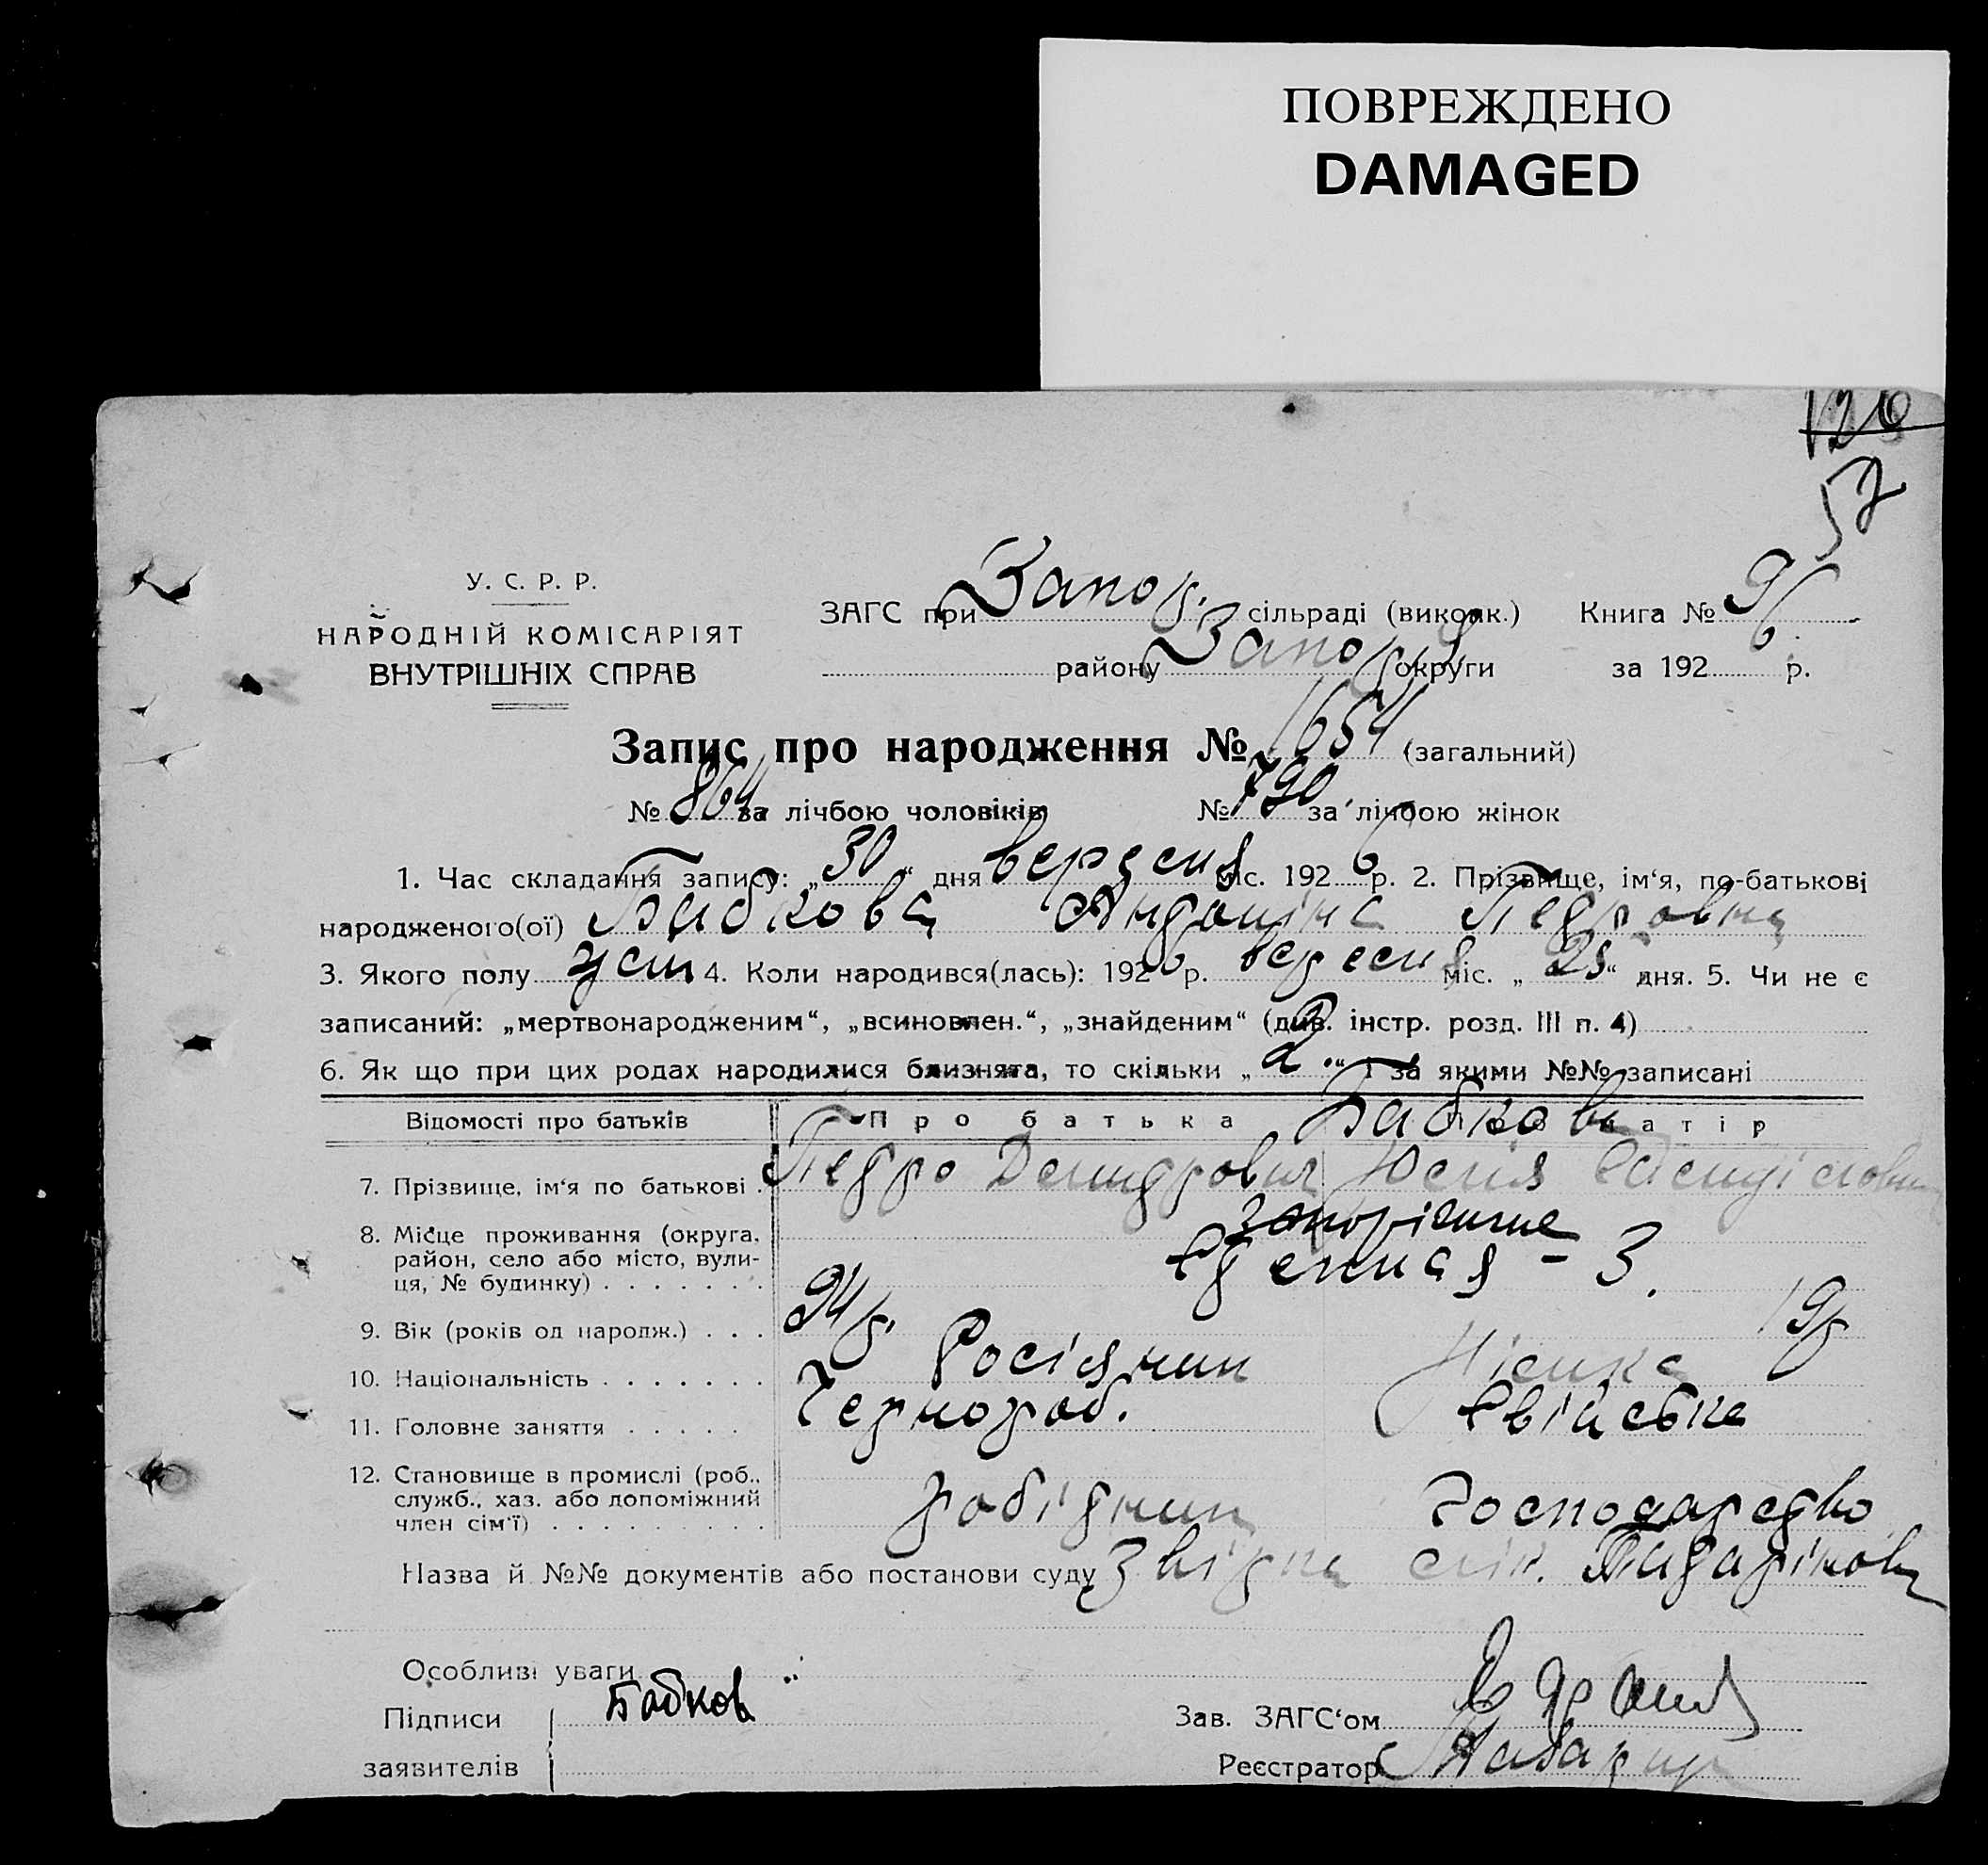 ПОВРЕЖДЕНО
DAMAGED
120
57
У. С. Р. Р.
НАРОДНІЙ КОМІСАРІЯТ
ВНУТРІШНІХ СПРАВ
ЗАГС при Запор. сільраді (виконк.) Книга № 9
району Запор. округи за 192 6 р.
Запис про народження № 1654 (загальний)
№ 864 за лічбою чоловіків № 790 за лічбою жінок
1. Час складання запису: „ 30 “ дня вересня міс. 192 6 р. 2. Прізвище, ім‘я, по-батькові
народженого(ої) Бабкова Антоніна Петровна
3. Якого полу жін 4. Коли народився(лась): 192 6 р. вересня міс. „ “ дня. 5. Чи не є
записаний: „мертвонародженим“, „всиновлен.“, „знайденим“ (див. інстр. розд. III п. 4)
6. Як що при цих родах народилися близнята, то скільки „ “ і за якими №№ записані
Відомості про батьків Про батька Бабкови матір
7. Прізвище, ім‘я по батькові . Петро Дмитрович Юлія
8. Місце проживання (округа, Запоріжжя
район, село або місто, вули- - 3.
ця, № будинку) . . . . . . .
9. Вік (років од народж.) . . . 24 р. 19 р
10. Національність . . . . . . . Росіянин Німка
11. Головне заняття . . . . . Чернороб. Свійське
12. Становище в промислі (роб.,
служб., хаз. або допоміжний робідник Господарство
член сім‘ї) . . . . . . . . .
Назва й №№ документів або постанови суду Звідка
Особливі уваги
Підписи Бабков Зав. ЗАГС‘ом
заявителів Реєстратор